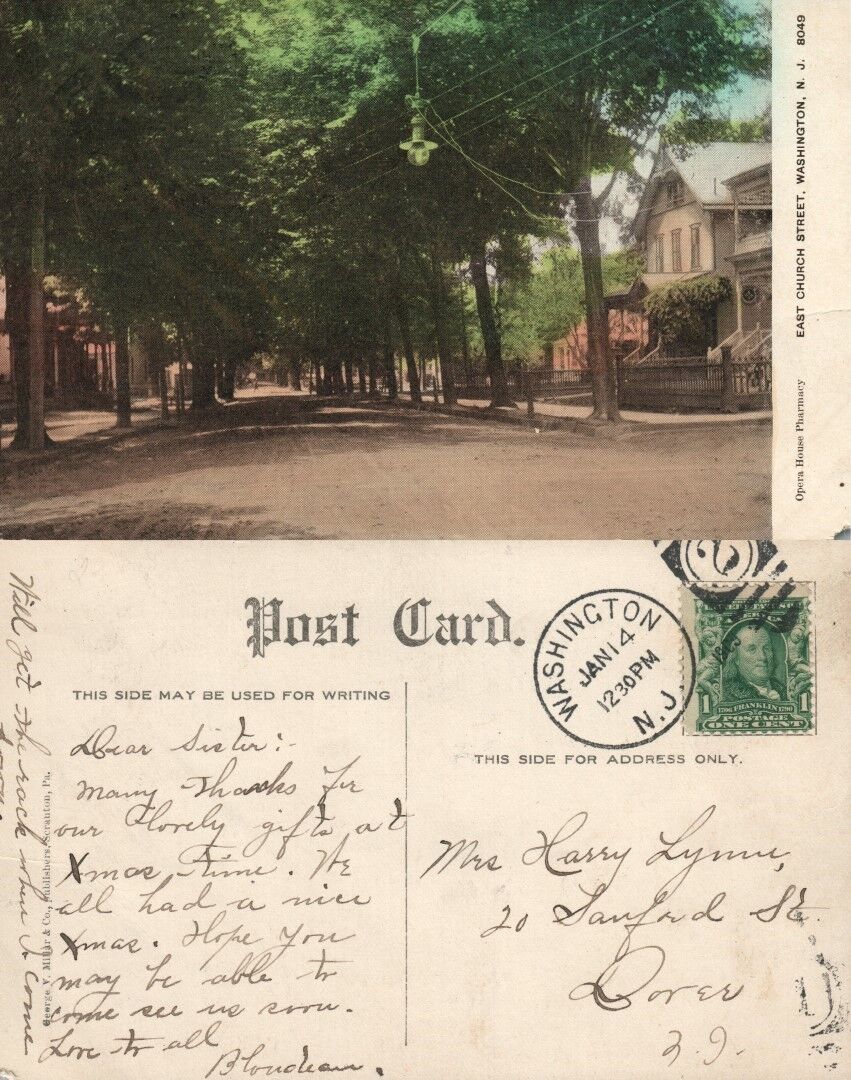 EAST CHURCH STREET, WASHINGTON, N. J. 8049
Opera House Pharmacy
Post Card.
THIS SIDE MAY BE USED FOR WRITING
THIS SIDE FOR ADDRESS ONLY.
WASHINGTON
JAN 14
12 30 PM
N.J.
1
1706 FRANKLIN 1790
1
POSTAGE
ONE CENT
Dear Sister:-
Many Thanks for
our lovely gifts at
Xmas Time. We
all had a nice
Xmas. Hope you
may be able to
come see us soon.
Love to all
Will get the rack when I come
George V. Millar & Co., Publishers, Scranton, Pa.
Mrs Harry Lynn,
20 Sanford St.
Dover
N.J.